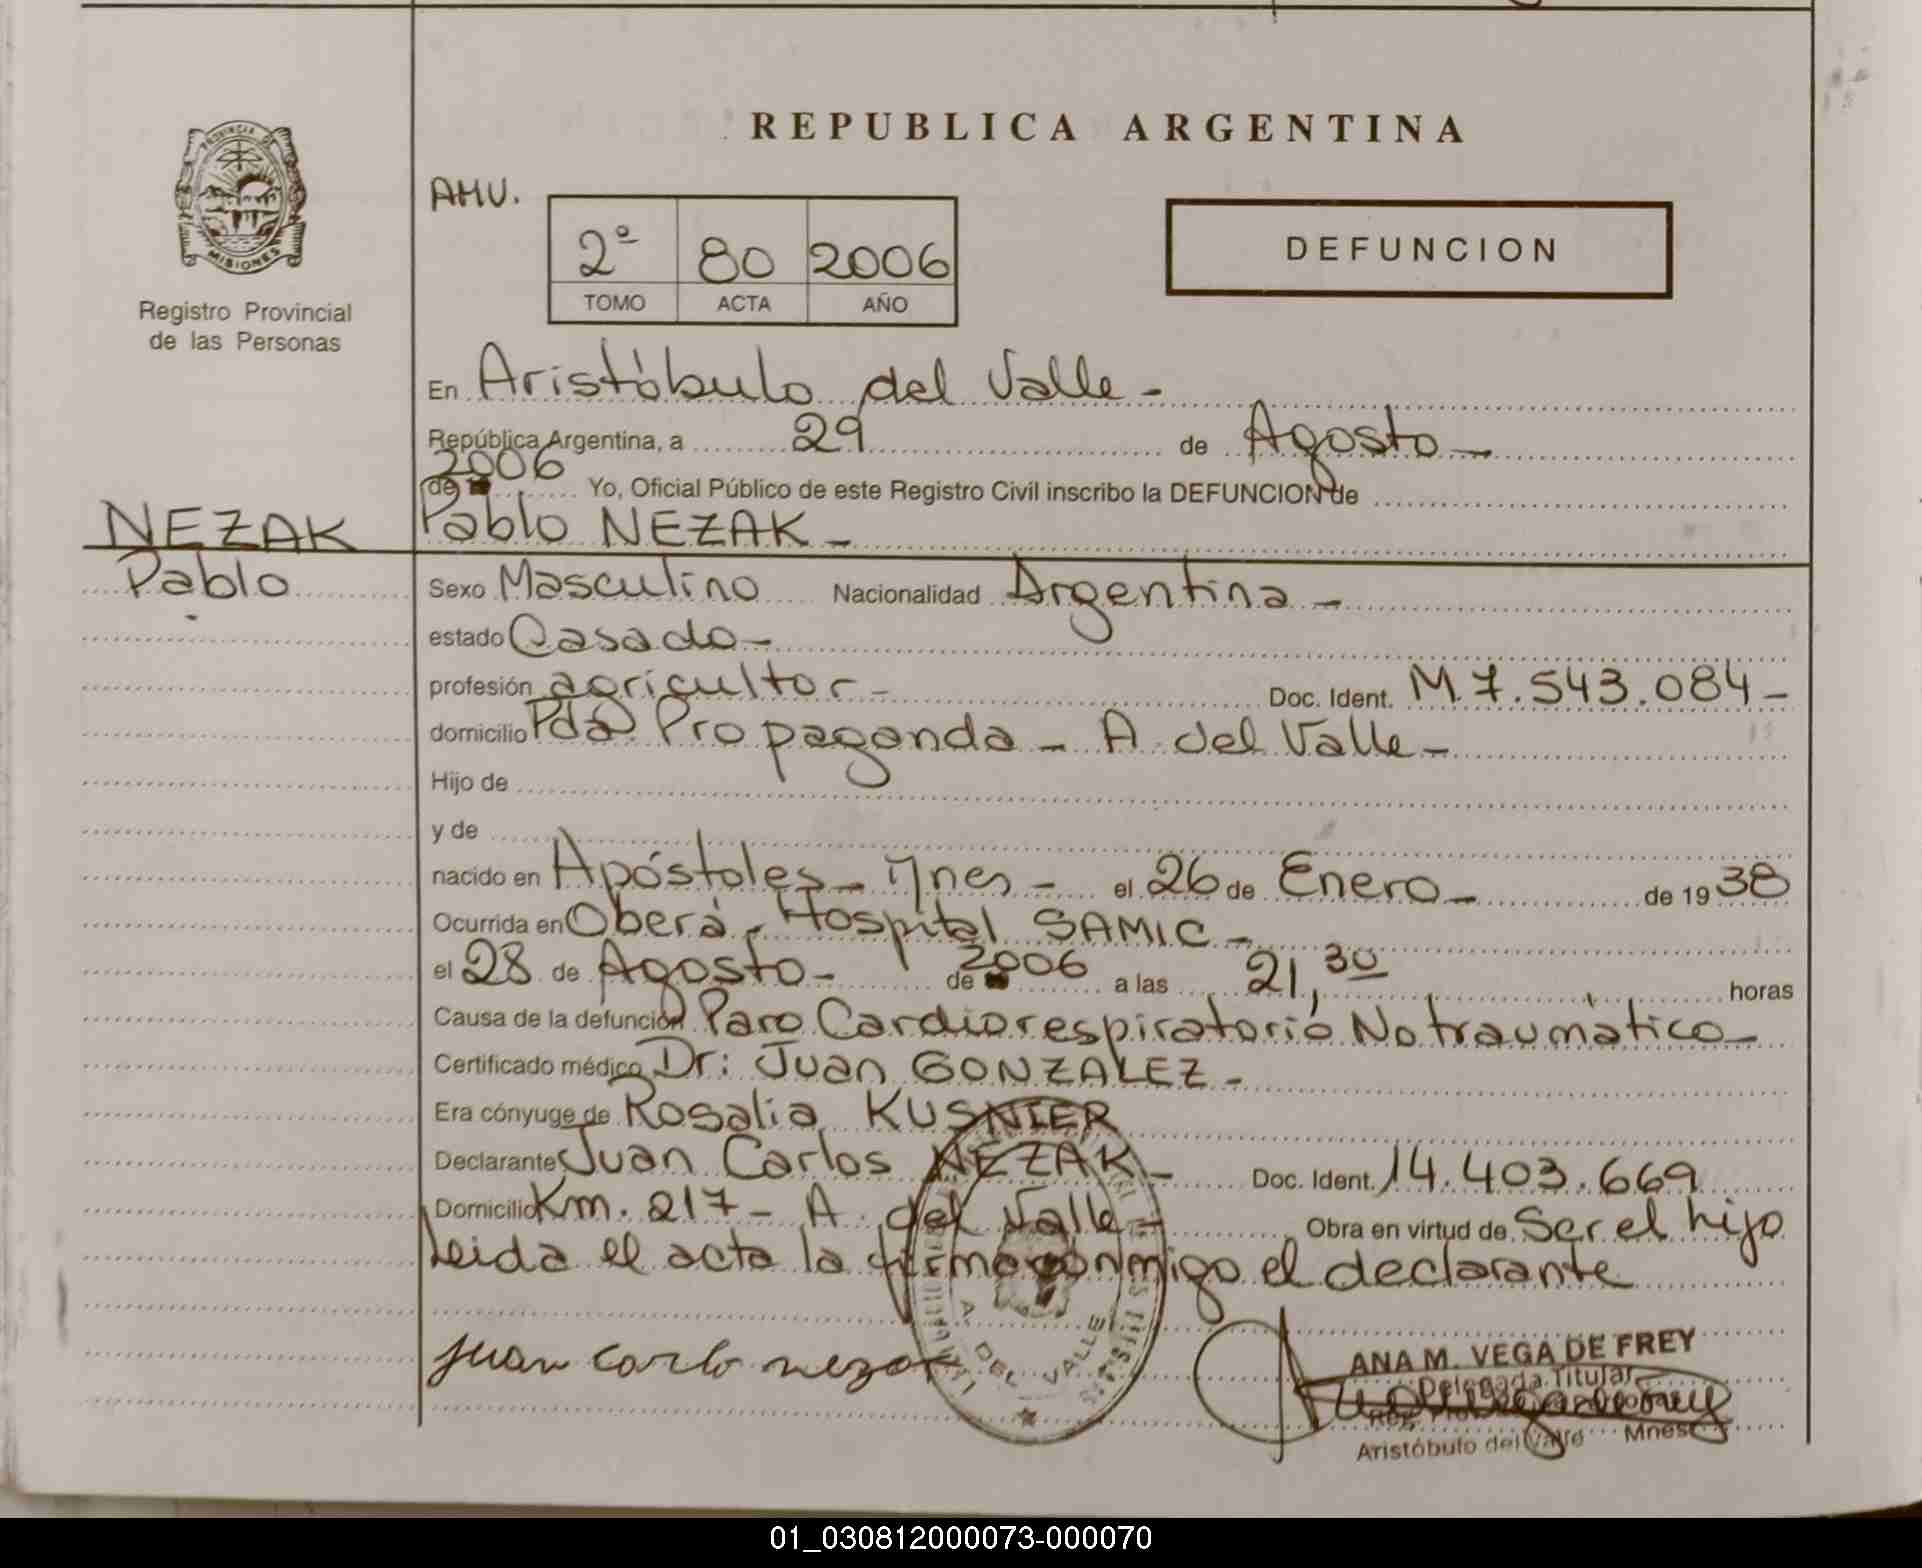 REPUBLICA ARGENTINA
PROVINCIA DE
MISIONES
Registro Provincial
de las Personas
AMV.
2º 80 2006
TOMO ACTA AÑO
DEFUNCION
En Aristóbulo del Valle -
República Argentina, a 29 de Agosto -
2006
de Yo, Oficial Público de este Registro Civil inscribo la DEFUNCION de
NEZAK
Pablo
Pablo NEZAK -
Sexo Masculino Nacionalidad Argentina -
estado Casado -
profesión agricultor - Doc. Ident. M.7.543.084 -
domicilio Pda Propaganda - A. del Valle -
Hijo de
y de
nacido en Apóstoles - Mnes - el 26 de Enero - de 1938
Ocurrida en Oberá - Hospital SAMIC -
el 28 de Agosto - de 2006 a las 21,30 horas
Causa de la defunción Paro Cardiorespiratorio No traumàtico -
Certificado médico Dr: Juan GONZALEZ -
Era cónyuge de Rosalia KUSNIER
Declarante Juan Carlos NEZAK - Doc. Ident. 14.403.669
Domicilio Km. 217 - A. del Valle - Obra en virtud de Ser el hijo
Leida el acta la firma conmigo el declarante
juan carlo nezak
A. DEL VALLE
ANA M. VEGA DE FREY
Delegada Titular
Aristóbulo del Valle Mnes
01_030812000073-000070